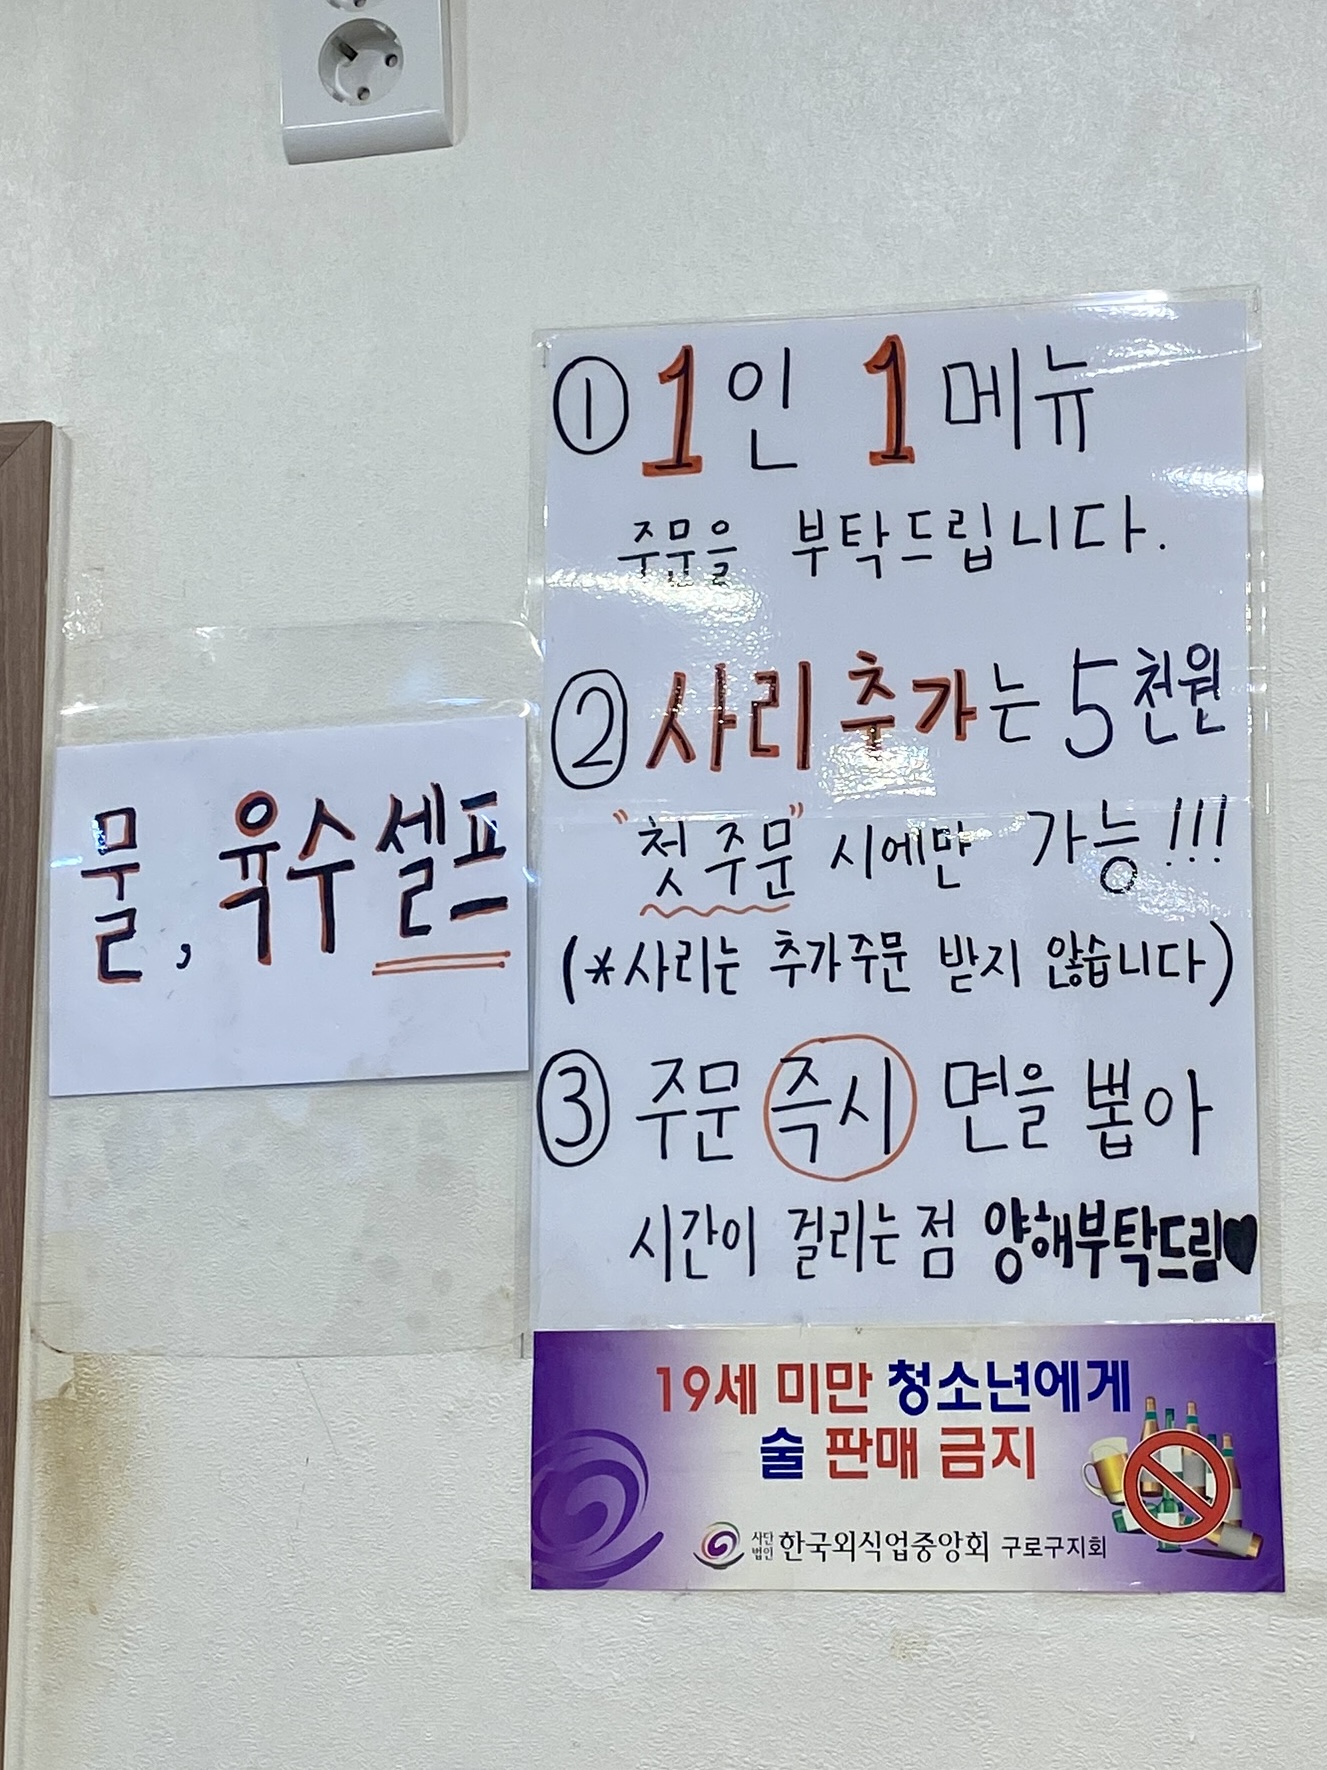 물, 육수 셀프
① 1인 1메뉴
주문을 부탁드립니다.
② 사리 추가는 5천원
"첫 주문" 시에만 가능!!!
(*사리는 추가주문 받지 않습니다)
③ 주문 즉시 면을 뽑아
시간이 걸리는 점 양해부탁드림♥
19세 미만 청소년에게
술 판매 금지
사단법인 한국외식업중앙회 구로구지회